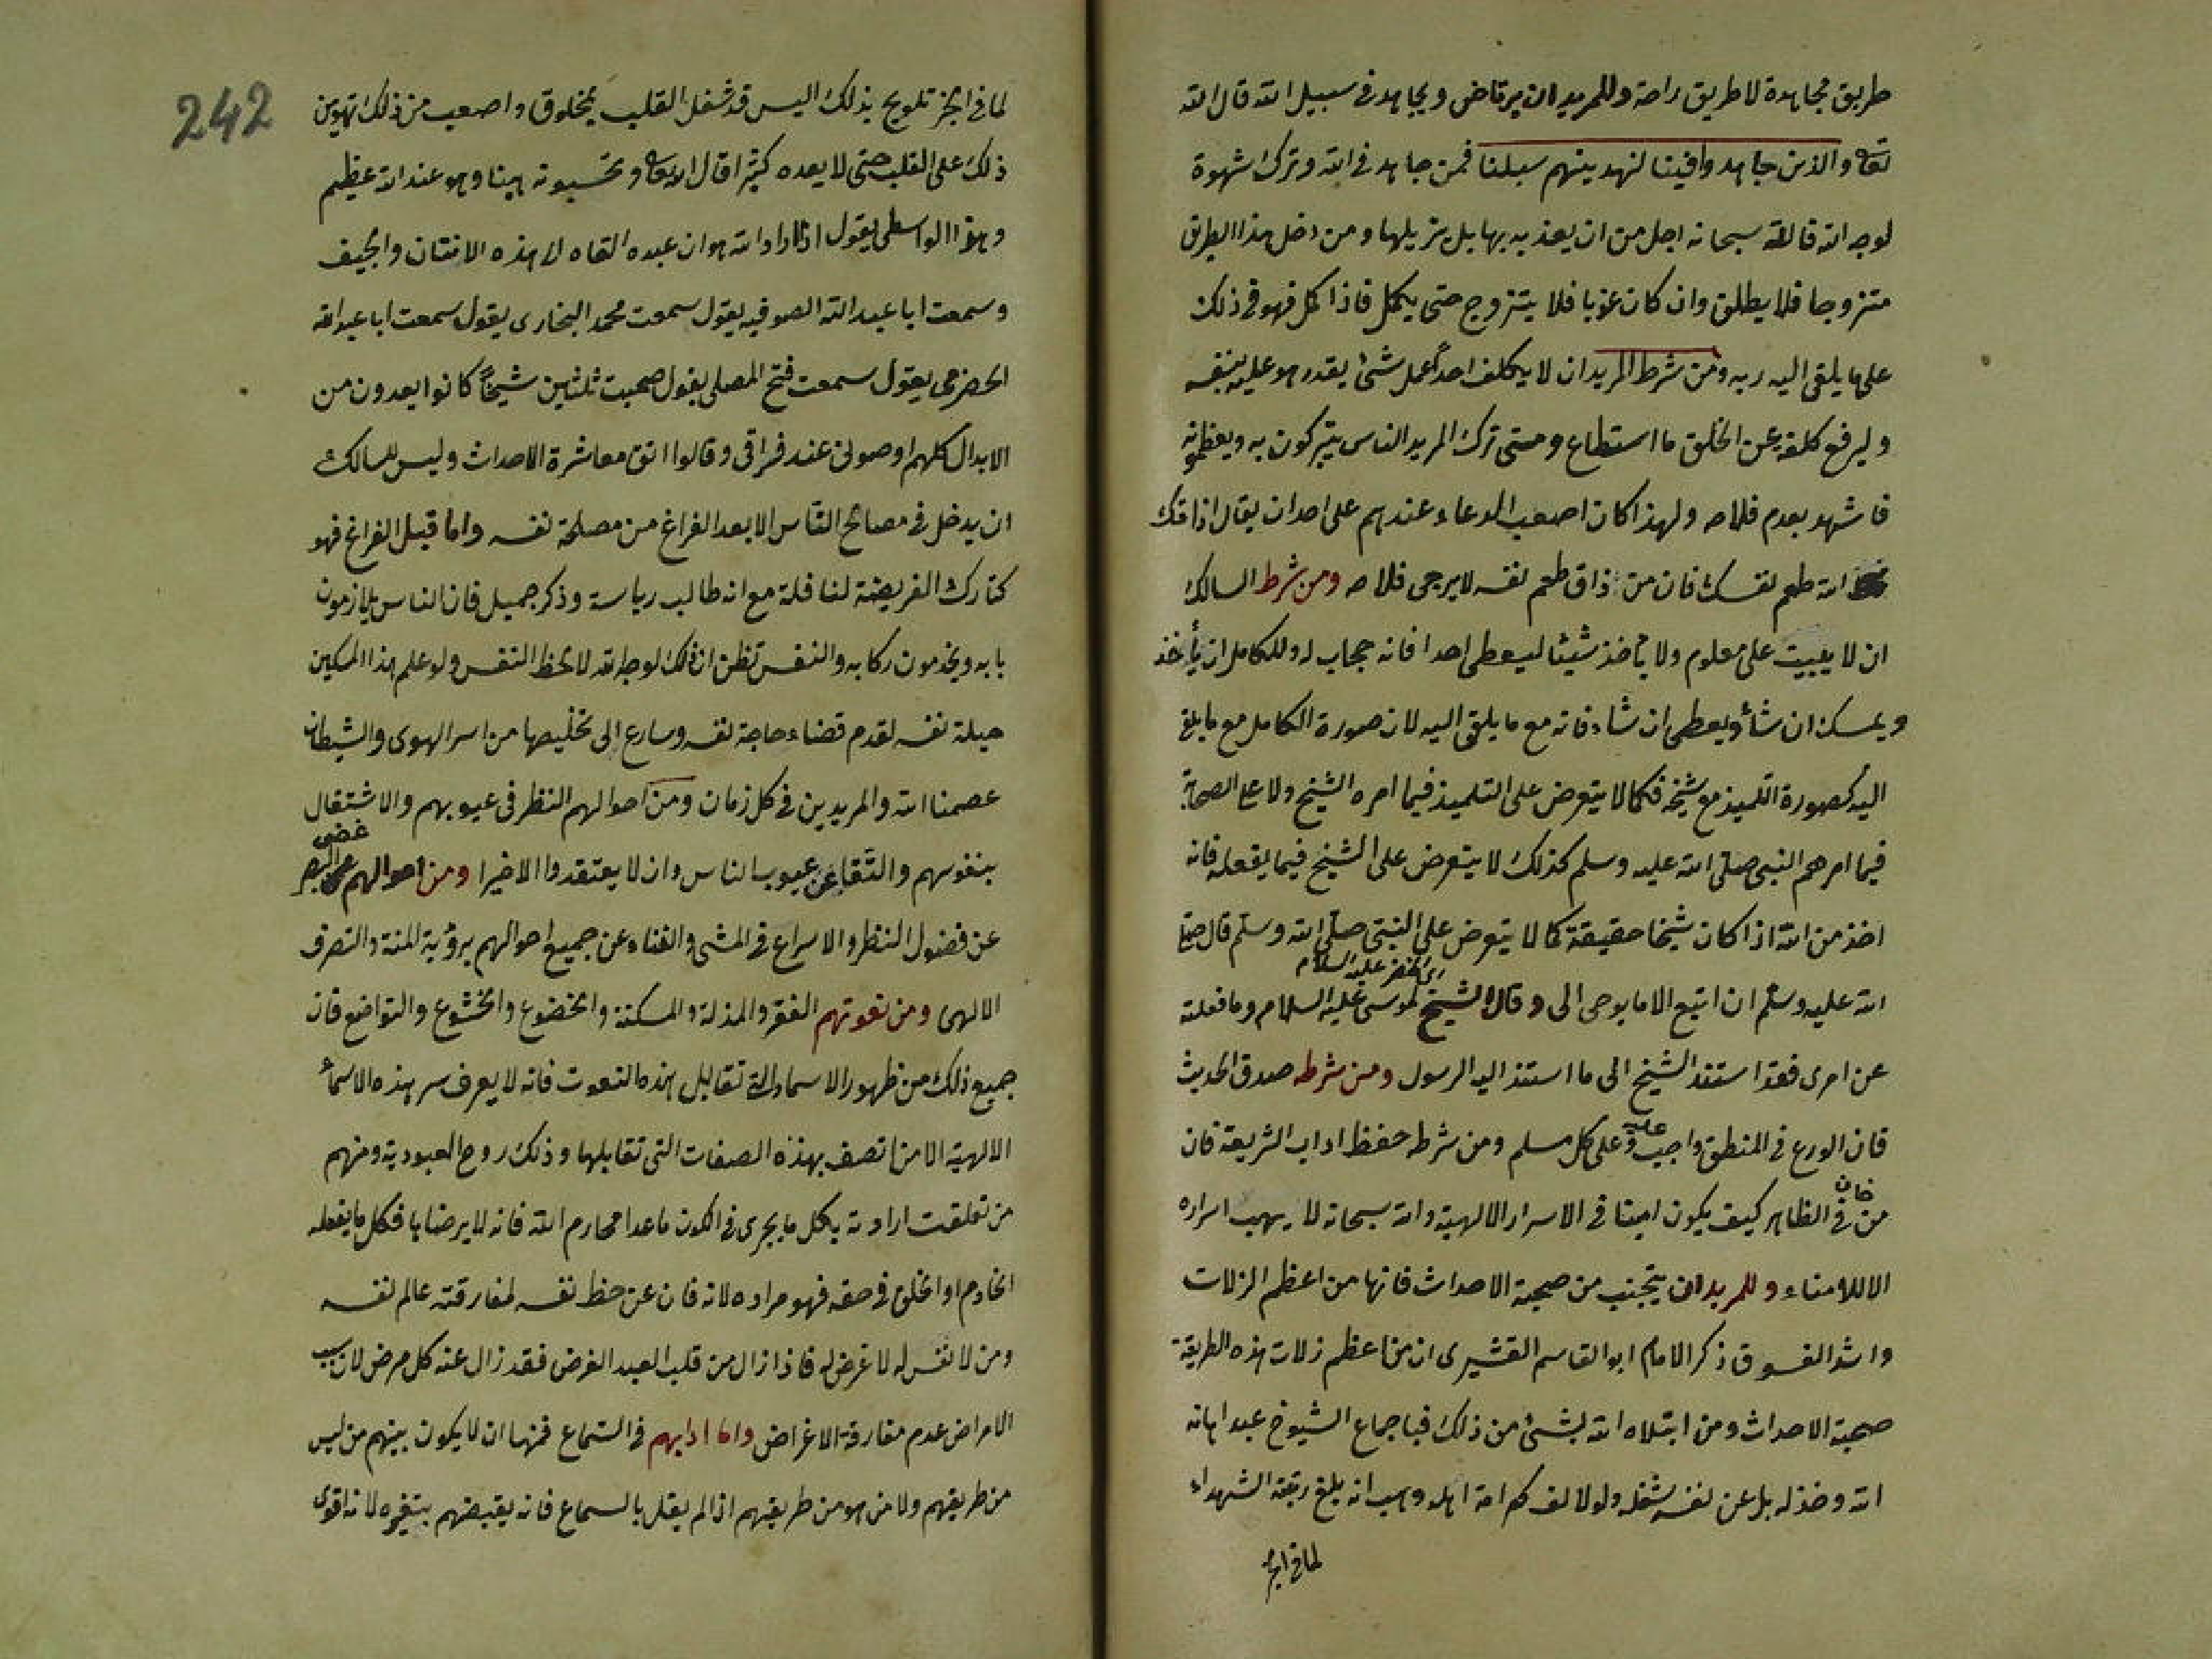 طريق مجاهدة لا طريق راحة وللمريد ان يرتاض ويجاهد في سبيل الله قال الله
تعالى والذين جاهدوا فينا لنهدينهم سبلنا فمن جاهد في الله وترك شهوة
لوجه الله فالله سبحانه اجل من ان يعذبه بها بل يزيلها ومن دخل هذا الطريق
متزوجا فلا يطلق وان كان عزبا فلا يتزوج حتى يكمل فاذا كمل فهو في ذلك
على ما يلقى اليه ربه ومن شرط المريد ان لا يكلف احدا عمل شئ يقدر هو عليه بنفسه
وليرفع كلفة عن الخلق ما استطاع ومتى ترك المريد الناس يتبركون به ويعظمونه
فاشهد بعدم فلاحه ولهذا كان اصعب الدعاء عندهم على احد ان يقال اذاقك
الله طعم نفسك فان من ذاق طعم نفسه لا يرجى فلاحه ومن شرط السالك
ان لا يبيت على معلوم ولا ياخذ شيئا ليعطى احدا فانه حجاب له وللكامل ان يأخذ
ويمسك ان شاء ويعطى ان شاء فانه مع ما يلقى اليه لان صورة الكامل مع ما يلقى
اليه كصورة التلميذ مع شيخه فكما لا يتعرض على التلميذ فيما امره الشيخ ولا على الصحابة
فيما امرهم النبى صلى الله عليه وسلم كذلك لا يتعرض على الشيخ فيما يفعله فانه
اخذ من الله اذا كان شيخا حقيقة كما لا يتعرض على النبى صلى الله وسلم قال صلى
اى الخضر عليه السلام
الله عليه وسلم ان اتبع الا ما يوحى الى وقال الشيخ لموسى عليه السلام وما فعلته
عن امرى فقد استند الشيخ الى ما استند اليه الرسول ومن شرطه صدق الحديث
فان الورع في المنطق واجب عليه وعلى كل مسلم ومن شرطه حفظ اداب الشريعة فان
من خان في الظاهر كيف يكون امينا في الاسرار الالهية والله سبحانه لا يهب اسراره
الا للامناء وللمريد ان يتجنب من صحبة الاحداث فانها من اعظم الزلات
واشد الفسوق ذكر الامام ابو القاسم القشيرى ان من اعظم زلات هذه الطريقة
صحبة الاحداث ومن ابتلاه الله بشئ من ذلك فباجماع الشيوخ عبد اهانه
الله وخذله بل عن نفسه شغله ولو لالف كرامة اهله وهب انه بلغ رتبة الشهداء
لما في الخبر
242
لما في الخبر تلويح بذلك اليس قد شغل القلب بمخلوق واصعب من ذلك تهوين
ذلك على القلب حتى لا يعده كثيرا قال الله تعالى وتحسبونه هينا وهو عند الله عظيم
وهذا الواسطى يقول اذا اراد الله هوان عبده القاه الى هذه الانتان والجيف
وسمعت ابا عبد الله الصوفي يقول سمعت محمد البخارى يقول سمعت ابا عبد الله
الحضرمى يقول سمعت فتح المصلى يقول صحبت ثلثين شيخا كانوا يعدون من
الابدال كلهم اوصونى عند فراقى وقالوا اتق معاشرة الاحداث وليس للسالك
ان يدخل في مصالح الناس الا بعد الفراغ من مصلحة نفسه واما قبل الفراغ فهو
كتارك الفريضة لنافلة مع انه طالب رياسة وذكر جميل فان الناس يلازمون
بابه ويخدمون ركابه والنفس تظن ان ذلك لوجه الله لا لحظ النفس ولو علم هذا المسكين
حيلة نفسه لقدم قضاء حاجة نفسه وسارع الى تخليصها من اسر الهوى والشيطان
عصمنا الله والمريدين في كل زمان ومن احوالهم النظر في عيوبهم والاشتغال
بنفوسهم والتقاعن عيوب الناس وان لا يعتقدوا الا خيرا ومن احوالهم غض البصر
عن فضول النظر والاسراع في المشى والفناء عن جميع احوالهم برؤية المنة والتصرف
الالهى ومن نعوتهم الفقر والمذلة والمسكنة والخضوع والخشوع والتواضع فان
جميع ذلك من ظهور الاسماء التى تقابل هذه النعوت فانه لا يعرف سر هذه الاسماء
الالهية الا من اتصف بهذه الصفات التى تقابلها وذلك روح العبودية ومنهم
من تعلقت ارادته بكل ما يجرى في الكون ما عدا محارم الله فانه لا يرضاها فكل ما يفعله
الخادم او الخلق في حقه فهو مراده لانه فان عن حظ نفسه لمفارقته عالم نفسه
ومن لا نفس له لا غرض له فاذا زال من قلب العبد الغرض فقد زال عنه كل مرض لان سبب
الامراض عدم مفارقة الاغراض واما ادابهم في السماع فمنها ان لا يكون بينهم من ليس
من طريقهم ولا من هو من طريقهم اذا لم يقل بالسماع فانه يقبضهم بتغيره لانه اقوى